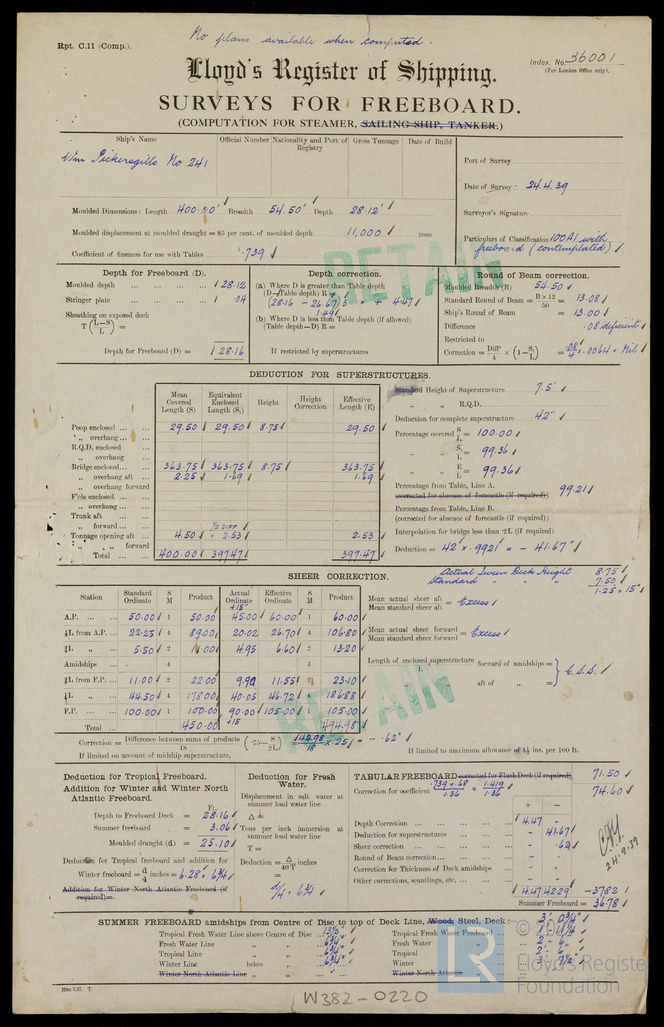 No plans available when computed.
Rpt. C.11 (Comp.).
Index. No. 36001
(For London Office only).
Lloyd's Register of Shipping.
SURVEYS FOR FREEBOARD.
(COMPUTATION FOR STEAMER, SAILING SHIP, TANKER.)
Ship's Name
Official Number
Nationality and Port of Registry
Gross Tonnage
Date of Build
Wm Pickersgills No 241
Port of Survey
Date of Survey 24.4.39
Surveyor's Signature
Particulars of Classification 100A1 with freeboard (contemplated)
Moulded Dimensions: Length 400.00' Breadth 54.50' Depth 28.12'
Moulded displacement at moulded draught = 85 per cent. of moulded depth 11,000 tons
Coefficient of fineness for use with Tables .739
RETAIN
Depth for Freeboard (D).
Moulded depth ... 28.12
Stringer plate ... .04
Sheathing on exposed deck
T (L-S/L) =
Depth for Freeboard (D) = 28.16
Depth correction.
(a) Where D is greater than Table depth
(D-Table depth) R =
(28.16 - 26.67) 3 = + 4.47
1.49
(b) Where D is less than Table depth (if allowed)
(Table depth-D) R =
If restricted by superstructures
Round of Beam correction.
Moulded Breadth (B) 54.50
Standard Round of Beam = B × 12 / 50 = 13.08
Ship's Round of Beam = 13.00
Difference .08 deficient
Restricted to
Correction = Diff / 4 × (1-S/L) = .08/4 × .0064 = Nil
DEDUCTION FOR SUPERSTRUCTURES.
Mean Covered Length (S)
Equivalent Enclosed Length (S₁)
Height
Height Correction
Effective Length (E)
Poop enclosed ... 29.50 29.50 8.75 29.50
„ overhang ...
R.Q.D. enclosed
„ overhang
Bridge enclosed... 363.75 363.75 8.75 363.75
„ overhang aft ... 2.25 1.69 1.69
„ overhang forward
F'cle enclosed ...
„ overhang ...
Trunk aft ...
„ forward ...
Tonnage opening aft ... 4.50 ½ DIFF. 2.53 2.53
„ „ forward
Total ... 400.00 397.47 397.47
Standard Height of Superstructure 7.5'
„ „ R.Q.D.
Deduction for complete superstructure 42"
Percentage covered S/L = 100.00
„ S₁/L = 99.36
„ E/L = 99.36
Percentage from Table, Line A. 99.21
(corrected for absence of forecastle (if required))
Percentage from Table, Line B.
(corrected for absence of forecastle (if required))
Interpolation for bridge less than ·2L (if required)
Deduction = 42 × .9921 = - 41.67"
SHEER CORRECTION.
Actual Tween Deck Height 8.75
Standard „ „ „ 7.50
1.25 = 15"
Station
Standard Ordinate
S M
Product
Actual Ordinate
Effective Ordinate
S M
Product
+15"
A.P. ... 50.00 1 50.00 45.00 60.00 1 60.00
⅙L from A.P. ... 22.25 4 89.00 20.02 26.70 4 106.80
⅓L „ 5.50 2 11.00 4.95 6.60 2 13.20
Amidships 4 4
⅓L from F.P. ... 11.00 2 22.00 9.90 11.55 2 23.10
⅙L „ 44.50 4 178.00 40.05 46.72 4 186.88
F.P. ... 100.00 1 100.00 90.00 105.00 1 105.00
Total ... 450.00 +15 494.98
Mean actual sheer aft / Mean standard sheer aft = Excess
Mean actual sheer forward / Mean standard sheer forward = Excess
Length of enclosed superstructure / L forward of amidships =
aft of „ =
C.S.S.
RETAIN
Correction = Difference between sums of products / 18 (·75- S/2L) = 44.98 / 18 × .25 = - .62"
If limited on account of midship superstructure.
If limited to maximum allowance of 1½ ins. per 100 ft.
Deduction for Tropical Freeboard.
Addition for Winter and Winter North Atlantic Freeboard.
Ft.
Depth to Freeboard Deck = 28.16
Summer freeboard = 3.06
Moulded draught (d) = 25.10
Deduction for Tropical freeboard and addition for Winter freeboard = d/4 inches = 6.28" = 6¼"
Addition for Winter North Atlantic Freeboard (if required)=
Deduction for Fresh Water.
Displacement in salt water at summer load water line
Δ =
Tons per inch immersion at summer load water line
T =
Deduction = Δ / 40T inches
= d/4 = 6¼"
TABULAR FREEBOARD corrected for Flush Deck (if required) 71.50
Correction for coefficient .739 + .68 / 1.36 = 1.419 / 1.36 74.60
+ -
Depth Correction ... 4.47 -
Deduction for superstructures ... - 41.67
Sheer correction ... - .62
Round of Beam correction... - -
Correction for Thickness of Deck amidships - -
Other corrections, scantlings, etc. ... - -
4.47 42.29 - 37.82
Summer Freeboard = 36.78
24.9.39
SUMMER FREEBOARD amidships from Centre of Disc to top of Deck Line, Wood, Steel, Deck :- 3 - 0¾"
Tropical Fresh Water Line above Centre of Disc ...
Fresh Water Line „ „
Tropical Line „ „
Winter Line below „
Winter North Atlantic Line „ „
Tropical Fresh Water Freeboard
Fresh Water „
Tropical „
Winter „
Winter North Atlantic
W382-0220
© LR
Lloyd's Register
Foundation